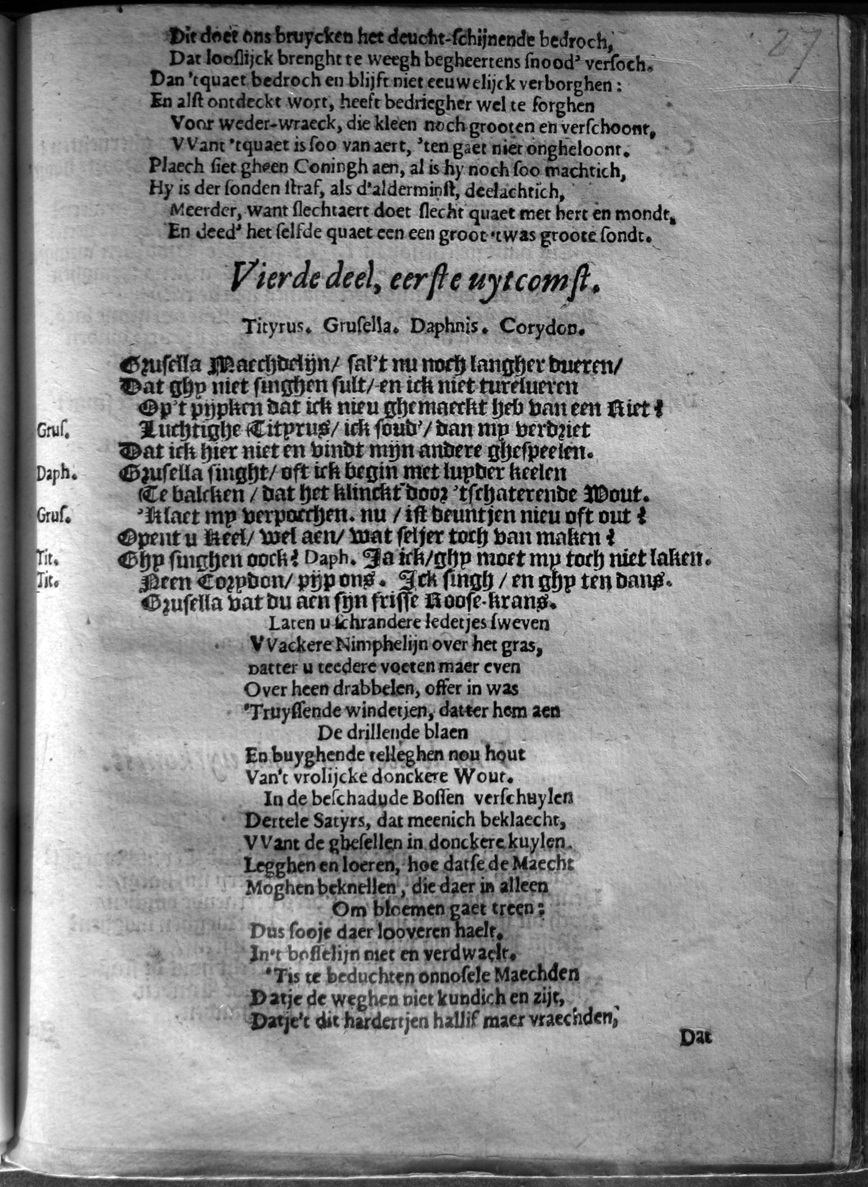 27
Dit doet ons bruycken het deucht-schijnende bedroch,
Dat looslijck brenght te weegh begheertens snood' versoch.
Dan 'tquaet bedroch en blijft niet eeuwelijck verborghen:
En alst ontdeckt wort, heeft bedriegher wel te sorghen
Voor weder-wraeck, die kleen noch grooten en verschoont,
VVant 'tquaet is soo van aert, 'ten gaet niet ongheloont.
Plaech siet gheen Coningh aen, al is hy noch soo machtich,
Hy is der sonden straf, als d'alderminst, deelachtich,
Meerder, want slechtaert doet slecht quaet met hert en mondt,
En deed' het selfde quaet een een groot 'twas groote sondt.
Vierde deel, eerste uytcomst.
Tityrus. Grusella. Daphnis. Corydon.
Grusella Maechdelijn/ sal't nu noch langher dueren/
Dat ghy niet singhen sult/ en ick niet turelueren
Op't pijpken dat ick nieu ghemaeckt heb van een Riet?
Grus. Luchtighe Tityrus/ ick soud'/ dan my verdriet
Dat ick hier niet en vindt mijn andere ghespeelen.
Daph. Grusella singht/ oft ick begin met luyder keelen
Te balcken/ dat het klinckt door 'tschaterende Wout.
Grus. 'Klaet my verpocchen. nu/ ist deuntjen nieu oft out?
Opent u keel/ wel aen/ wat seljer toch van maken?
Tit. Ghy singhen oock? Daph. Ja ick/ghy moet my toch niet laken.
Tit. Neen Corydon/ pijp ons. Ick singh/ en ghy ten dans.
Grusella vat du aen sijn frisse Roose-krans.
Laten u schrandere ledetjes sweven
VVackere Nimphelijn over het gras,
Datter u teedere voeten maer even
Over heen drabbelen, offer in was
'Truyssende windetjen, datter hem aen
De drillende blaen
En buyghende telleghen nou hout
Van't vrolijcke donckere Wout.
In de beschadude Bossen verschuylen
Dertele Satyrs, dat meenich beklaecht,
VVant de ghesellen in donckere kuylen.
Legghen en loeren, hoe datse de Maecht
Moghen beknellen, die daer in alleen
Om bloemen gaet treen:
Dus sooje daer looveren haelt,
In't bosselijn niet en verdwaelt.
'Tis te beduchten onnosele Maechden
Datje de weghen niet kundich en zijt,
Datje't dit hardertjen hallif maer vraechden,
Dat